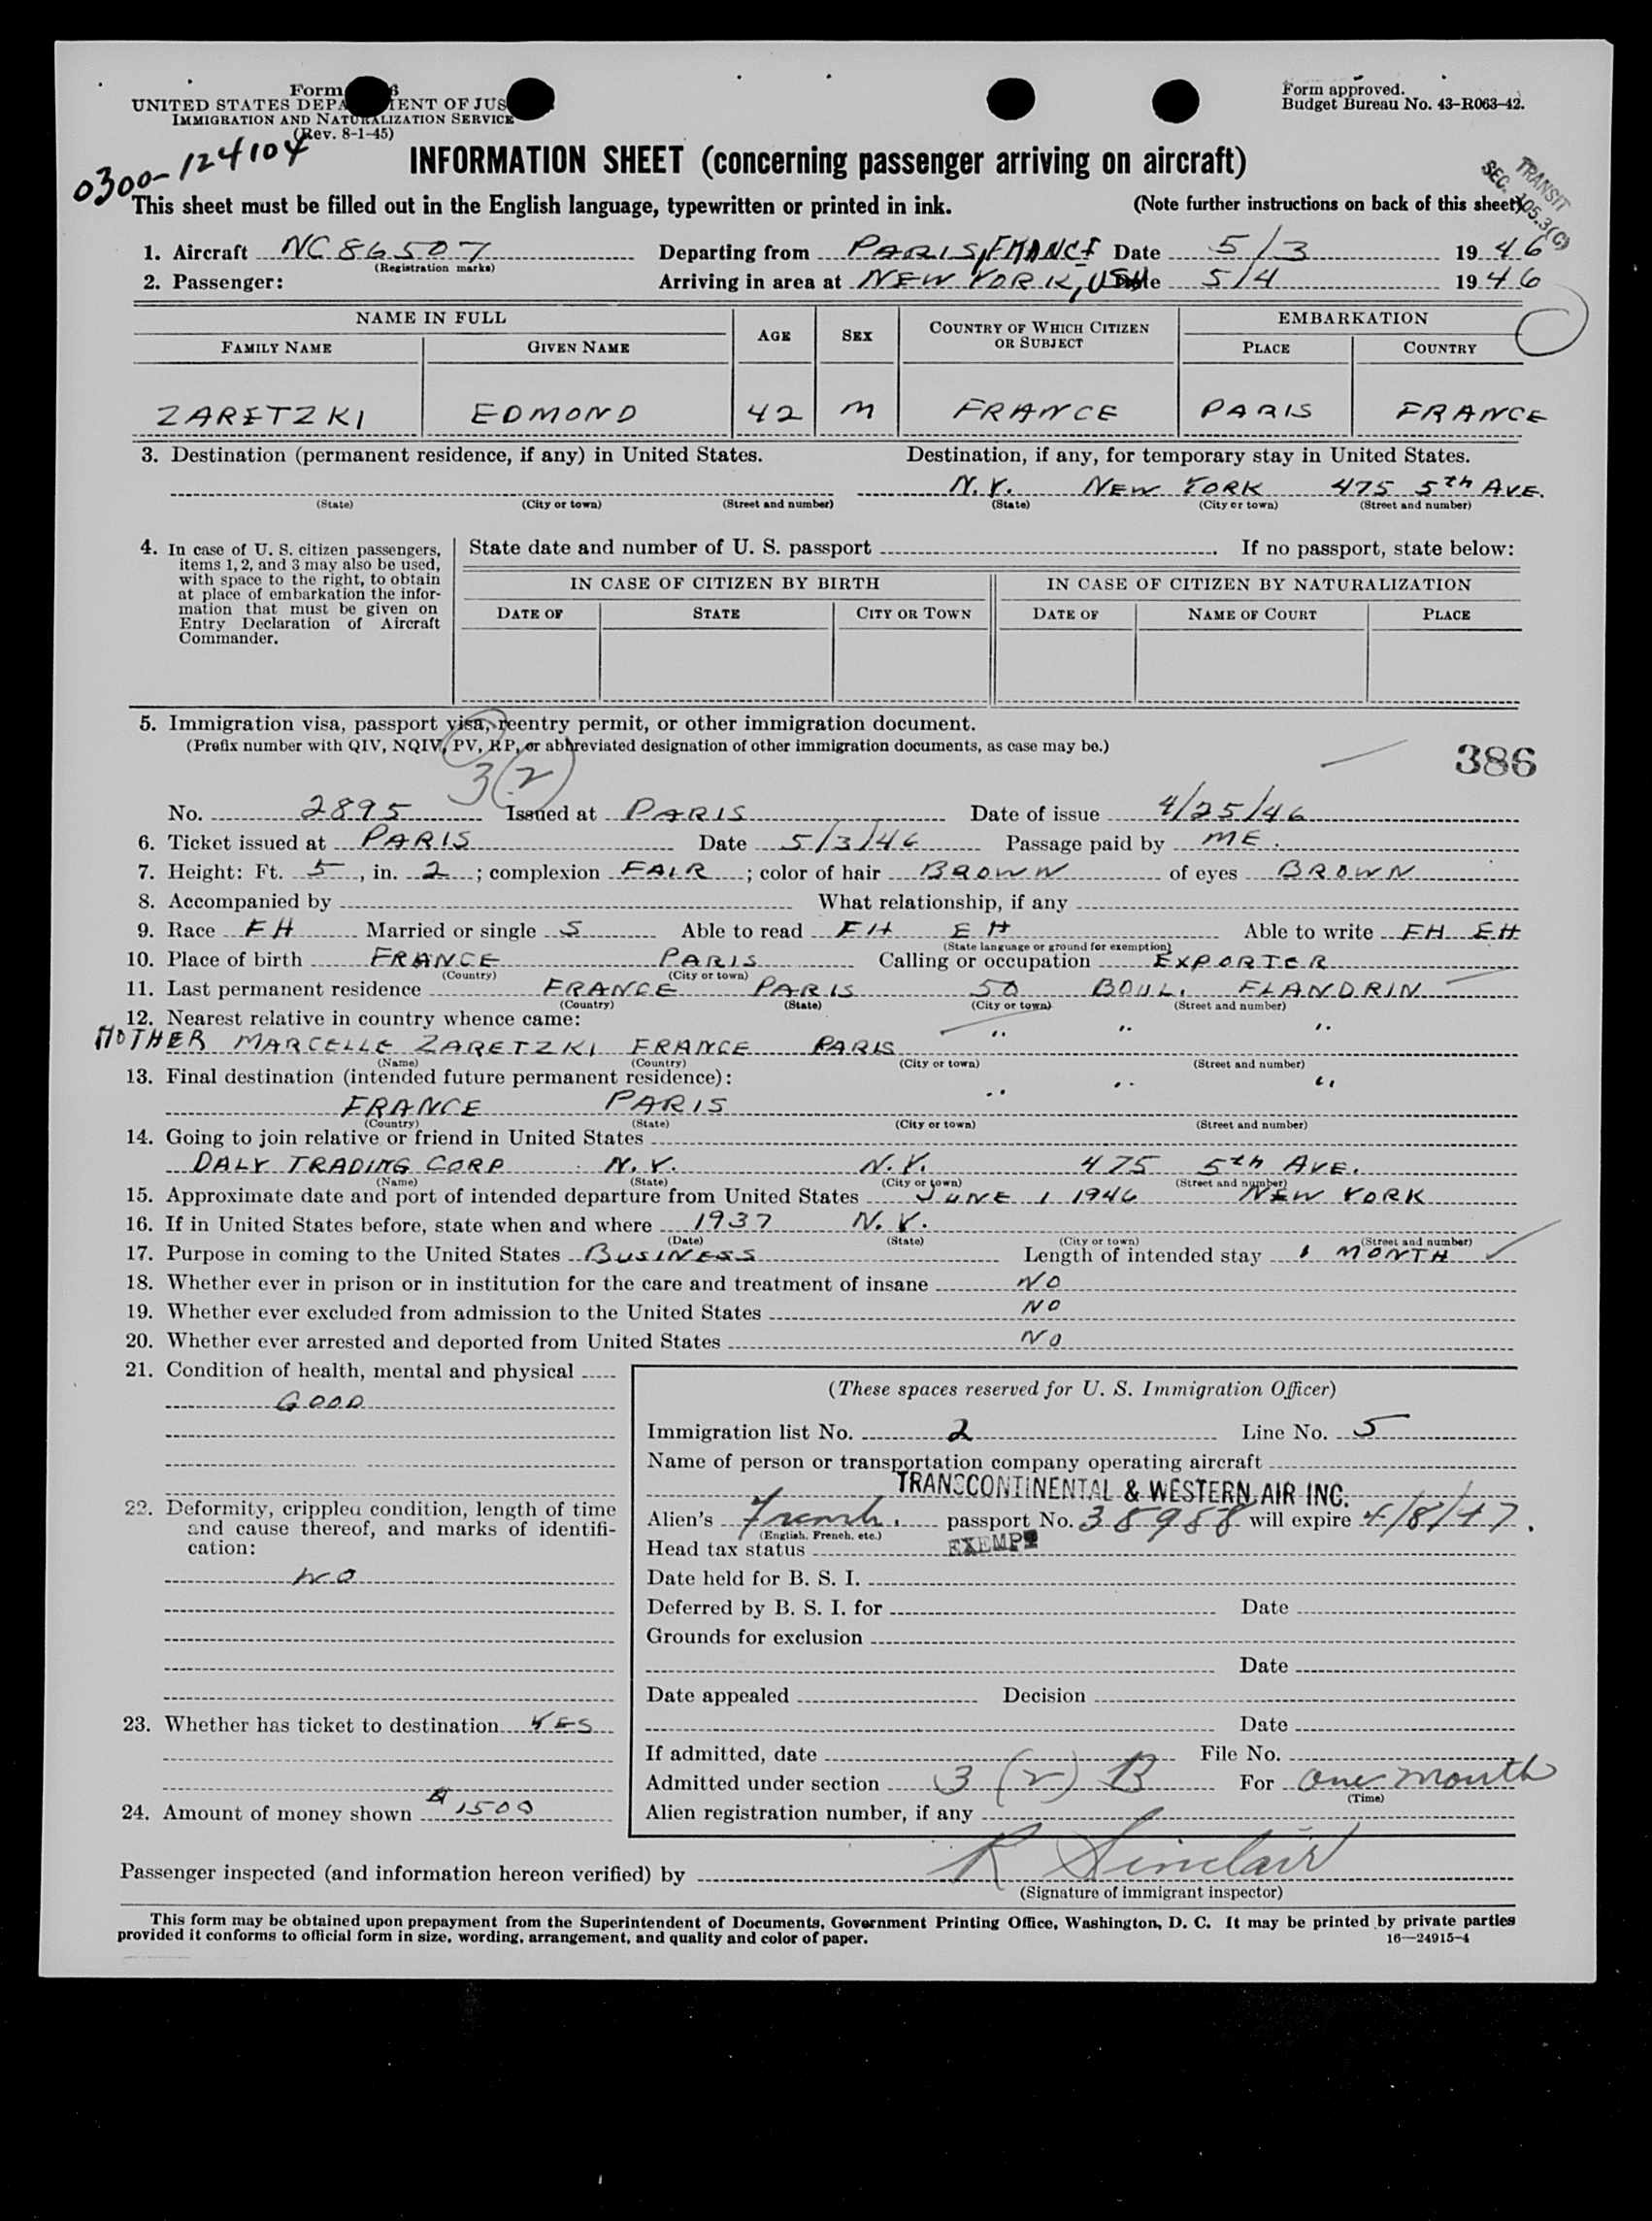 Form
UNITED STATES DEPA IENT OF JUS
IMMIGRATION AND NATURALIZATION SERVICE
(Rev. 8-1-45)
Form approved.
Budget Bureau No. 43-R063-42.
0300-124104
INFORMATION SHEET (concerning passenger arriving on aircraft)
TRANSIT
SEC. 105.3(C)
This sheet must be filled out in the English language, typewritten or printed in ink. (Note further instructions on back of this sheet)
1. Aircraft NC86507 Departing from PARIS, FRANCE Date 5/3 1946
(Registration marks)
2. Passenger: Arriving in area at NEW YORK, USA Date 5/4 1946
NAME IN FULL AGE SEX COUNTRY OF WHICH CITIZEN OR SUBJECT EMBARKATION
FAMILY NAME GIVEN NAME PLACE COUNTRY
ZARETZKI EDMOND 42 M FRANCE PARIS FRANCE
3. Destination (permanent residence, if any) in United States. Destination, if any, for temporary stay in United States.
N.Y. NEW YORK 475 5th AVE.
(State) (City or town) (Street and number) (State) (City or town) (Street and number)
4. In case of U. S. citizen passengers, items 1, 2, and 3 may also be used, with space to the right, to obtain at place of embarkation the information that must be given on Entry Declaration of Aircraft Commander.
State date and number of U. S. passport . If no passport, state below:
IN CASE OF CITIZEN BY BIRTH IN CASE OF CITIZEN BY NATURALIZATION
DATE OF STATE CITY OR TOWN DATE OF NAME OF COURT PLACE
5. Immigration visa, passport visa, reentry permit, or other immigration document.
(Prefix number with QIV, NQIV, PV, RP, or abbreviated designation of other immigration documents, as case may be.)
386
3(2)
No. 2895 Issued at PARIS Date of issue 4/25/46
6. Ticket issued at PARIS Date 5/3/46 Passage paid by ME.
7. Height: Ft. 5, in. 2; complexion FAIR; color of hair BROWN of eyes BROWN
8. Accompanied by What relationship, if any
9. Race FH Married or single S Able to read FH EH Able to write FH EH
(State language or ground for exemption)
10. Place of birth FRANCE PARIS Calling or occupation EXPORTER
(Country) (City or town)
11. Last permanent residence FRANCE PARIS 50 BOUL. FLANDRIN
(Country) (State) (City or town) (Street and number)
12. Nearest relative in country whence came:
MOTHER MARCELLE ZARETZKI FRANCE PARIS " " "
(Name) (Country) (City or town) (Street and number)
13. Final destination (intended future permanent residence):
FRANCE PARIS " " "
(Country) (State) (City or town) (Street and number)
14. Going to join relative or friend in United States
DALY TRADING CORP N.Y. N.Y. 475 5th AVE.
(Name) (State) (City or town) (Street and number)
15. Approximate date and port of intended departure from United States JUNE 1 1946 NEW YORK
16. If in United States before, state when and where 1937 N.Y.
(Date) (State) (City or town) (Street and number)
17. Purpose in coming to the United States BUSINESS Length of intended stay 1 MONTH
18. Whether ever in prison or in institution for the care and treatment of insane NO
19. Whether ever excluded from admission to the United States NO
20. Whether ever arrested and deported from United States NO
21. Condition of health, mental and physical
GOOD
22. Deformity, crippled condition, length of time and cause thereof, and marks of identification:
NO
23. Whether has ticket to destination YES
24. Amount of money shown $1500
(These spaces reserved for U. S. Immigration Officer)
Immigration list No. 2 Line No. 5
Name of person or transportation company operating aircraft
TRANSCONTINENTAL & WESTERN AIR INC.
Alien's French. passport No. 38988 will expire 4/8/47.
(English, French, etc.)
Head tax status EXEMPT
Date held for B. S. I.
Deferred by B. S. I. for Date
Grounds for exclusion
Date
Date appealed Decision
Date
If admitted, date File No.
Admitted under section 3 (2) B For one month
(Time)
Alien registration number, if any
Passenger inspected (and information hereon verified) by R Sinclair
(Signature of immigrant inspector)
This form may be obtained upon prepayment from the Superintendent of Documents, Government Printing Office, Washington, D. C. It may be printed by private parties
provided it conforms to official form in size, wording, arrangement, and quality and color of paper. 16—24915-4